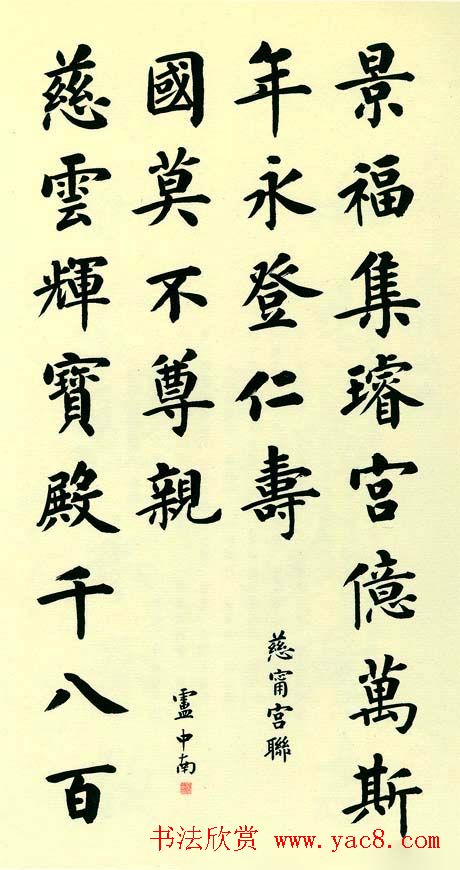 景福集璿宮億萬斯
年永登仁壽
慈甯宮聯
慈雲輝寶殿千八百
國莫不尊親
盧中南
书法欣赏 www.yac8.com